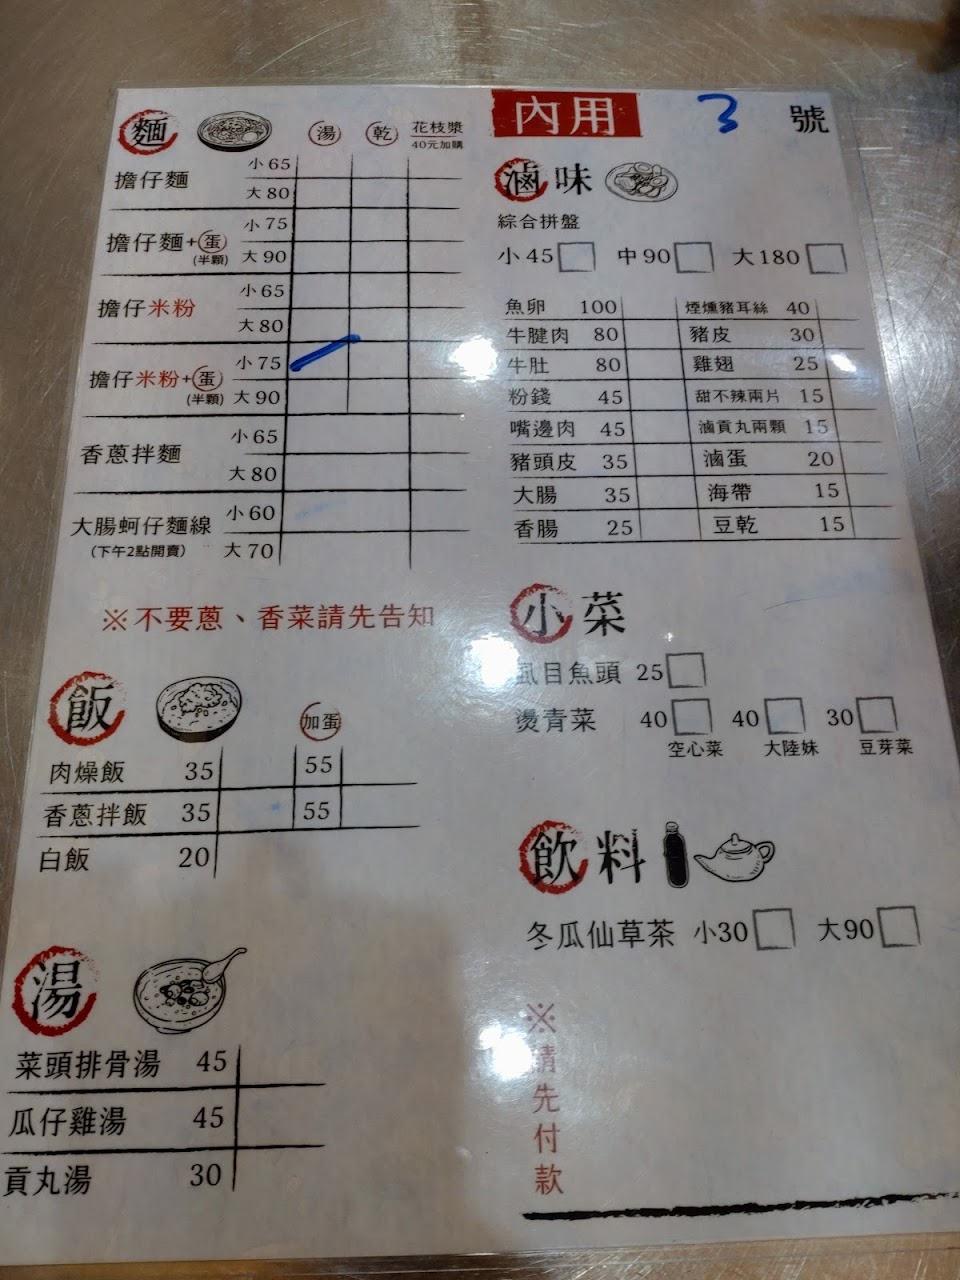 麵 湯 乾 花枝漿
40元加購
擔仔麵 小65
大80
擔仔麵+蛋 小75
(半顆) 大90
擔仔米粉 小65
大80
擔仔米粉+蛋 小75
(半顆) 大90
香蔥拌麵 小65
大80
大腸蚵仔麵線 小60
(下午2點開賣) 大70
※不要蔥、香菜請先告知
飯 加蛋
肉燥飯 35 55
香蔥拌飯 35 55
白飯 20
湯
菜頭排骨湯 45
瓜仔雞湯 45
貢丸湯 30
內用 3 號
滷味
綜合拼盤
小45 中90 大180
魚卵 100 煙燻豬耳絲 40
牛腱肉 80 豬皮 30
牛肚 80 雞翅 25
粉錢 45 甜不辣兩片 15
嘴邊肉 45 滷貢丸兩顆 15
豬頭皮 35 滷蛋 20
大腸 35 海帶 15
香腸 25 豆乾 15
小菜
虱目魚頭 25
燙青菜 40 40 30
空心菜 大陸妹 豆芽菜
飲料
冬瓜仙草茶 小30 大90
※請先付款